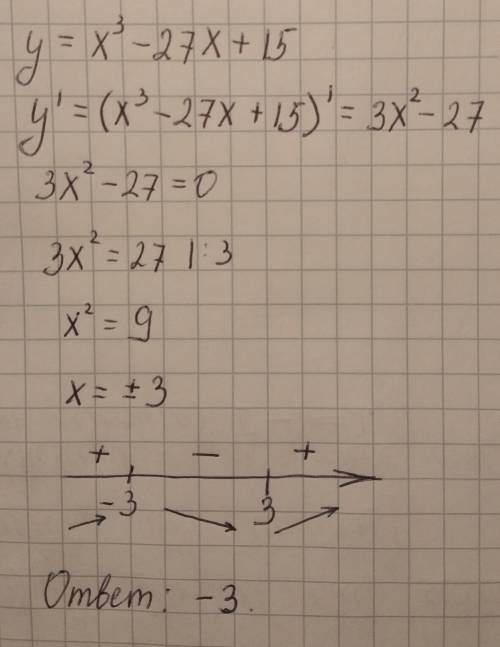 y = x³ - 27x + 15
y' = (x³ - 27x + 15)' = 3x² - 27
3x² - 27 = 0
3x² = 27 | : 3
x² = 9
x = ± 3
+ − +
-3 3
Ответ: -3.